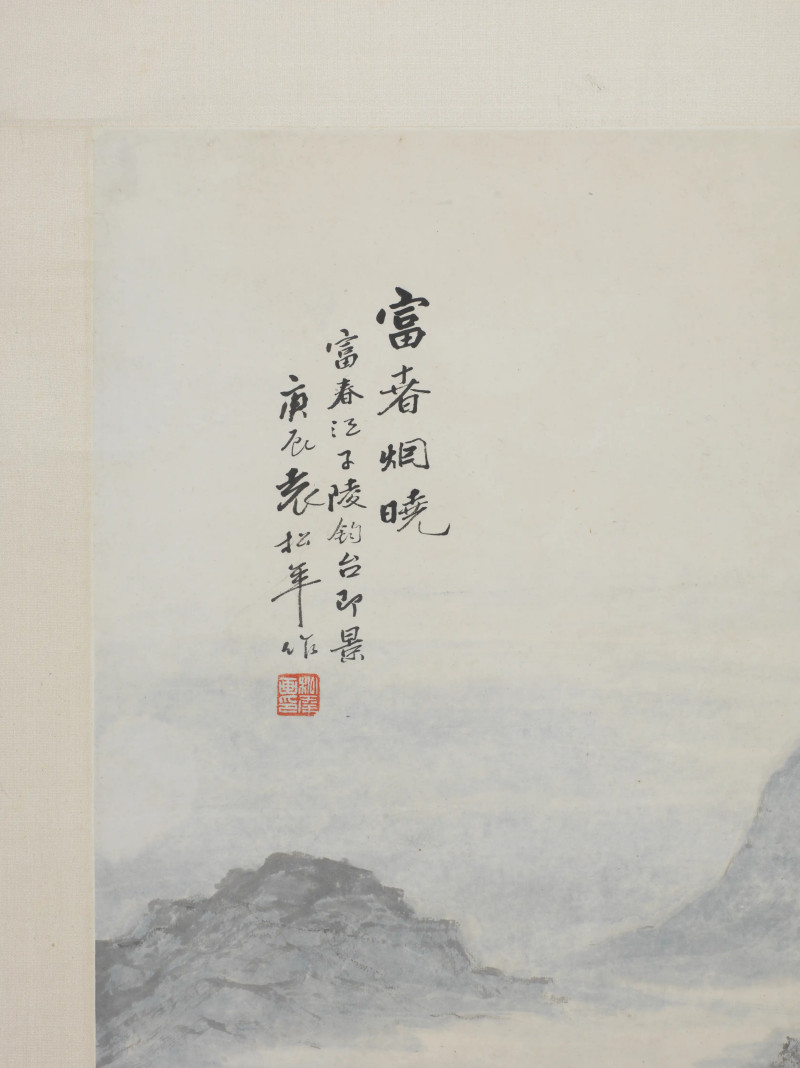 富春烟曉
富春江子陵釣台即景
庚辰袁松年作
松年
畫印